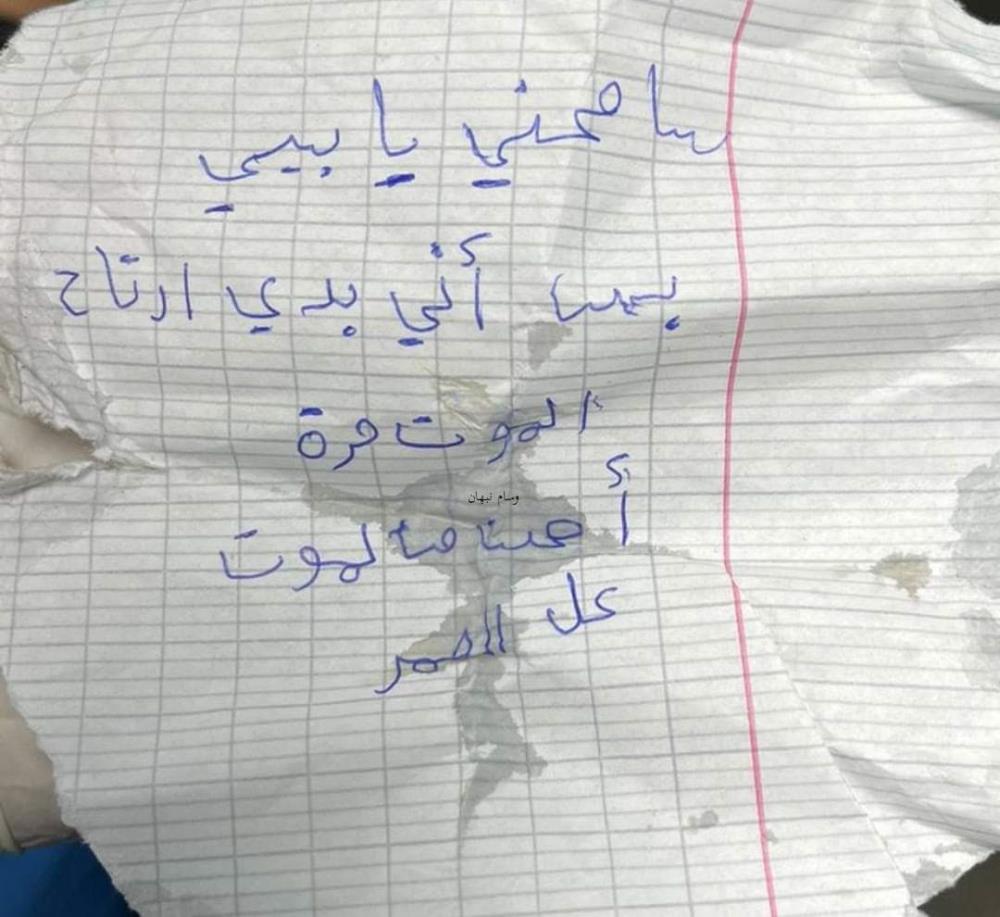 سامحني يا بيي
بس أني بدي ارتاح
الموت مرة
وسام نبهان
أحسن ما نموت
كل العمر